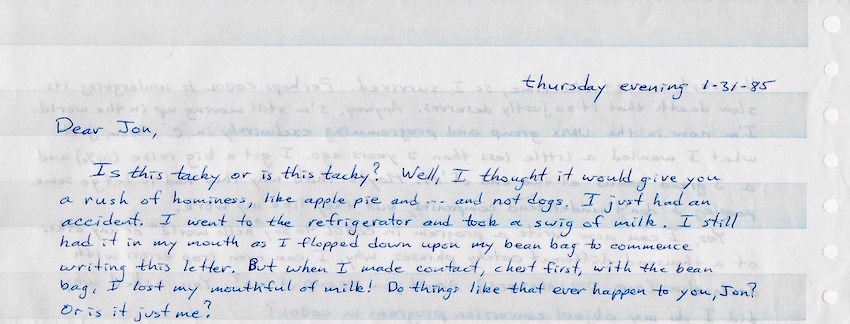 thursday evening 1-31-85
Dear Jon,
Is this tacky or is this tacky? Well, I thought it would give you
a rush of hominess, like apple pie and ... and not dogs. I just had an
accident. I went to the refrigerator and took a swig of milk. I still
had it in my mouth as I flopped down upon my bean bag to commence
writing this letter. But when I made contact, chest first, with the bean
bag, I lost my mouthful of milk! Do things like that ever happen to you, Jon?
Or is it just me?